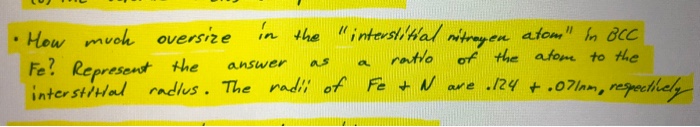 • How much oversize in the "interstitial nitrogen atom" in BCC
Fe? Represent the answer as a ratio of the atom to the
interstitial radius. The radii of Fe + N are .124 + .071nm, respectively